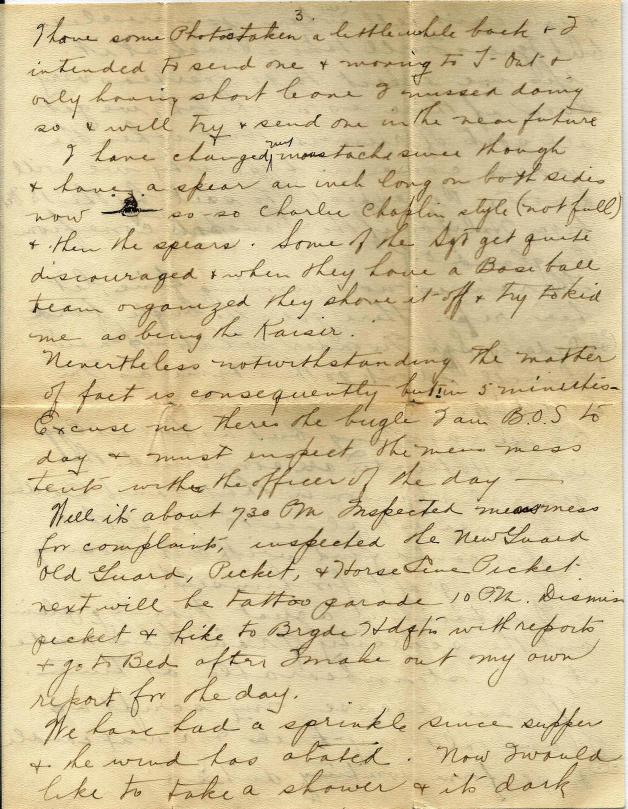 3.
I have some Photos taken a little while back & I
intended to send one & moving to T- Out &
only having short leave I missed doing
so & will try & send one in the near future
I have changed my moustache since though
& have a spear an inch long on both sides
now so-so Charlie Chaplin style (not full)
& then the spears. Some of the Sgt get quite
discouraged & when they have a Base ball
team organized they shave it off & try to kid
me as being the Kaiser.
Nevertheless notwithstanding the matter
of fact is consequently but in 5 minutes-
Excuse me theres the bugle I am B.O.S to
day & must inspect the mens mess
tents with the officer of the day —
Well it's about 7.30 PM Inspected mens mess
for complaints, inspected the New Guard
Old Guard, Picket, & Horse Line Picket
next will be tattoo parade 10 PM. Dismiss
picket & hike to Brgde Hdqts with reports
& go to Bed after I make out my own
report for the day.
We have had a sprinkle since supper
& the wind has abated. Now I would
like to take a shower & it's dark